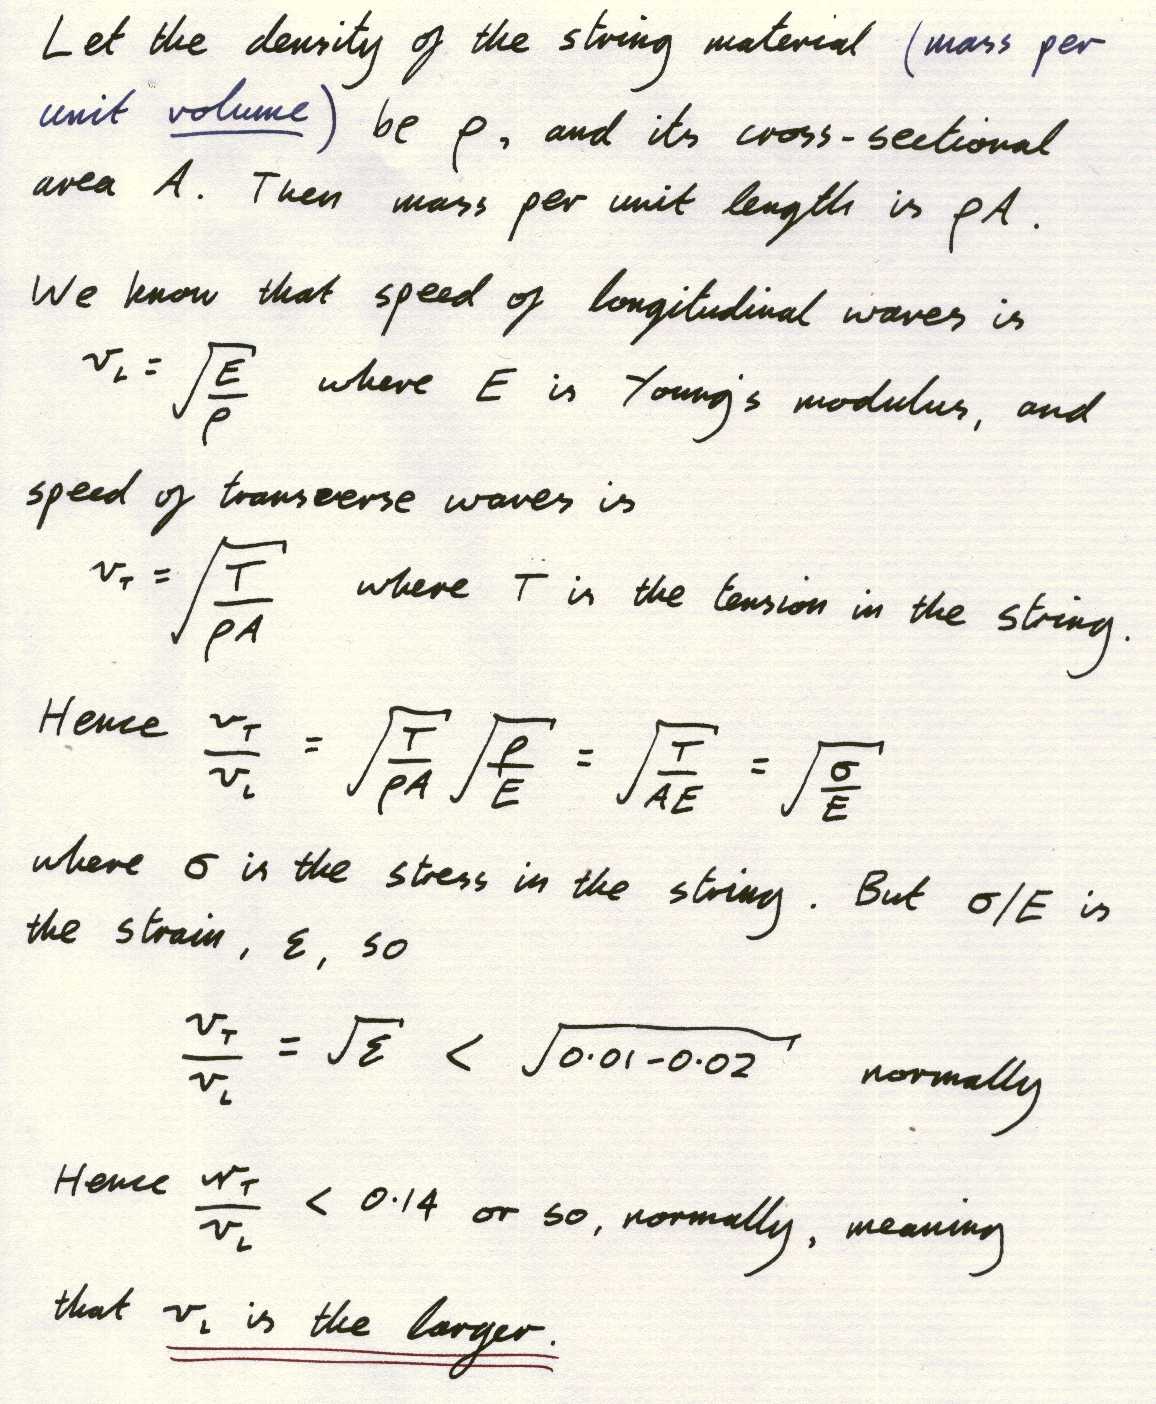 Let the density of the string material (mass per
unit volume) be ρ, and its cross-sectional
area A. Then mass per unit length is ρA.
We know that speed of longitudinal waves is
v_L = √(E/ρ) where E is Young's modulus, and
speed of transverse waves is
v_T = √(T/ρA) where T is the tension in the string.
Hence v_T/v_L = √(T/ρA) √(ρ/E) = √(T/AE) = √(σ/E)
where σ is the stress in the string. But σ/E is
the strain, ε, so
v_T/v_L = √ε < √(0.01-0.02) normally
Hence v_T/v_L < 0.14 or so, normally, meaning
that v_L is the larger.